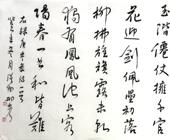 玉階僊仗擁千官
花迎劍佩星初落
柳拂旌旗露未乾
獨有鳳凰池上客
陽春一曲和皆難
右録唐岑參詩一首